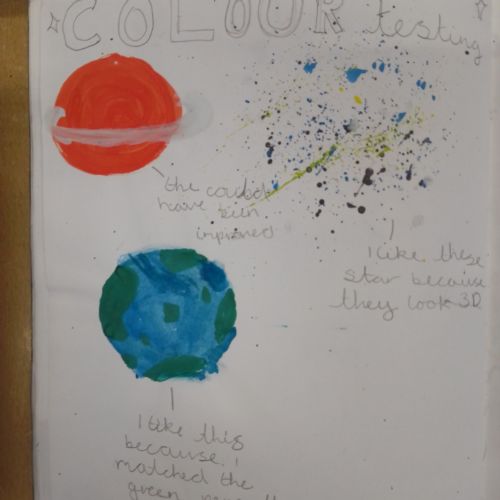 COLOUR testing
the could
have been
improved
I like these
star because
they look 3D
I like this
because I
matched the
green